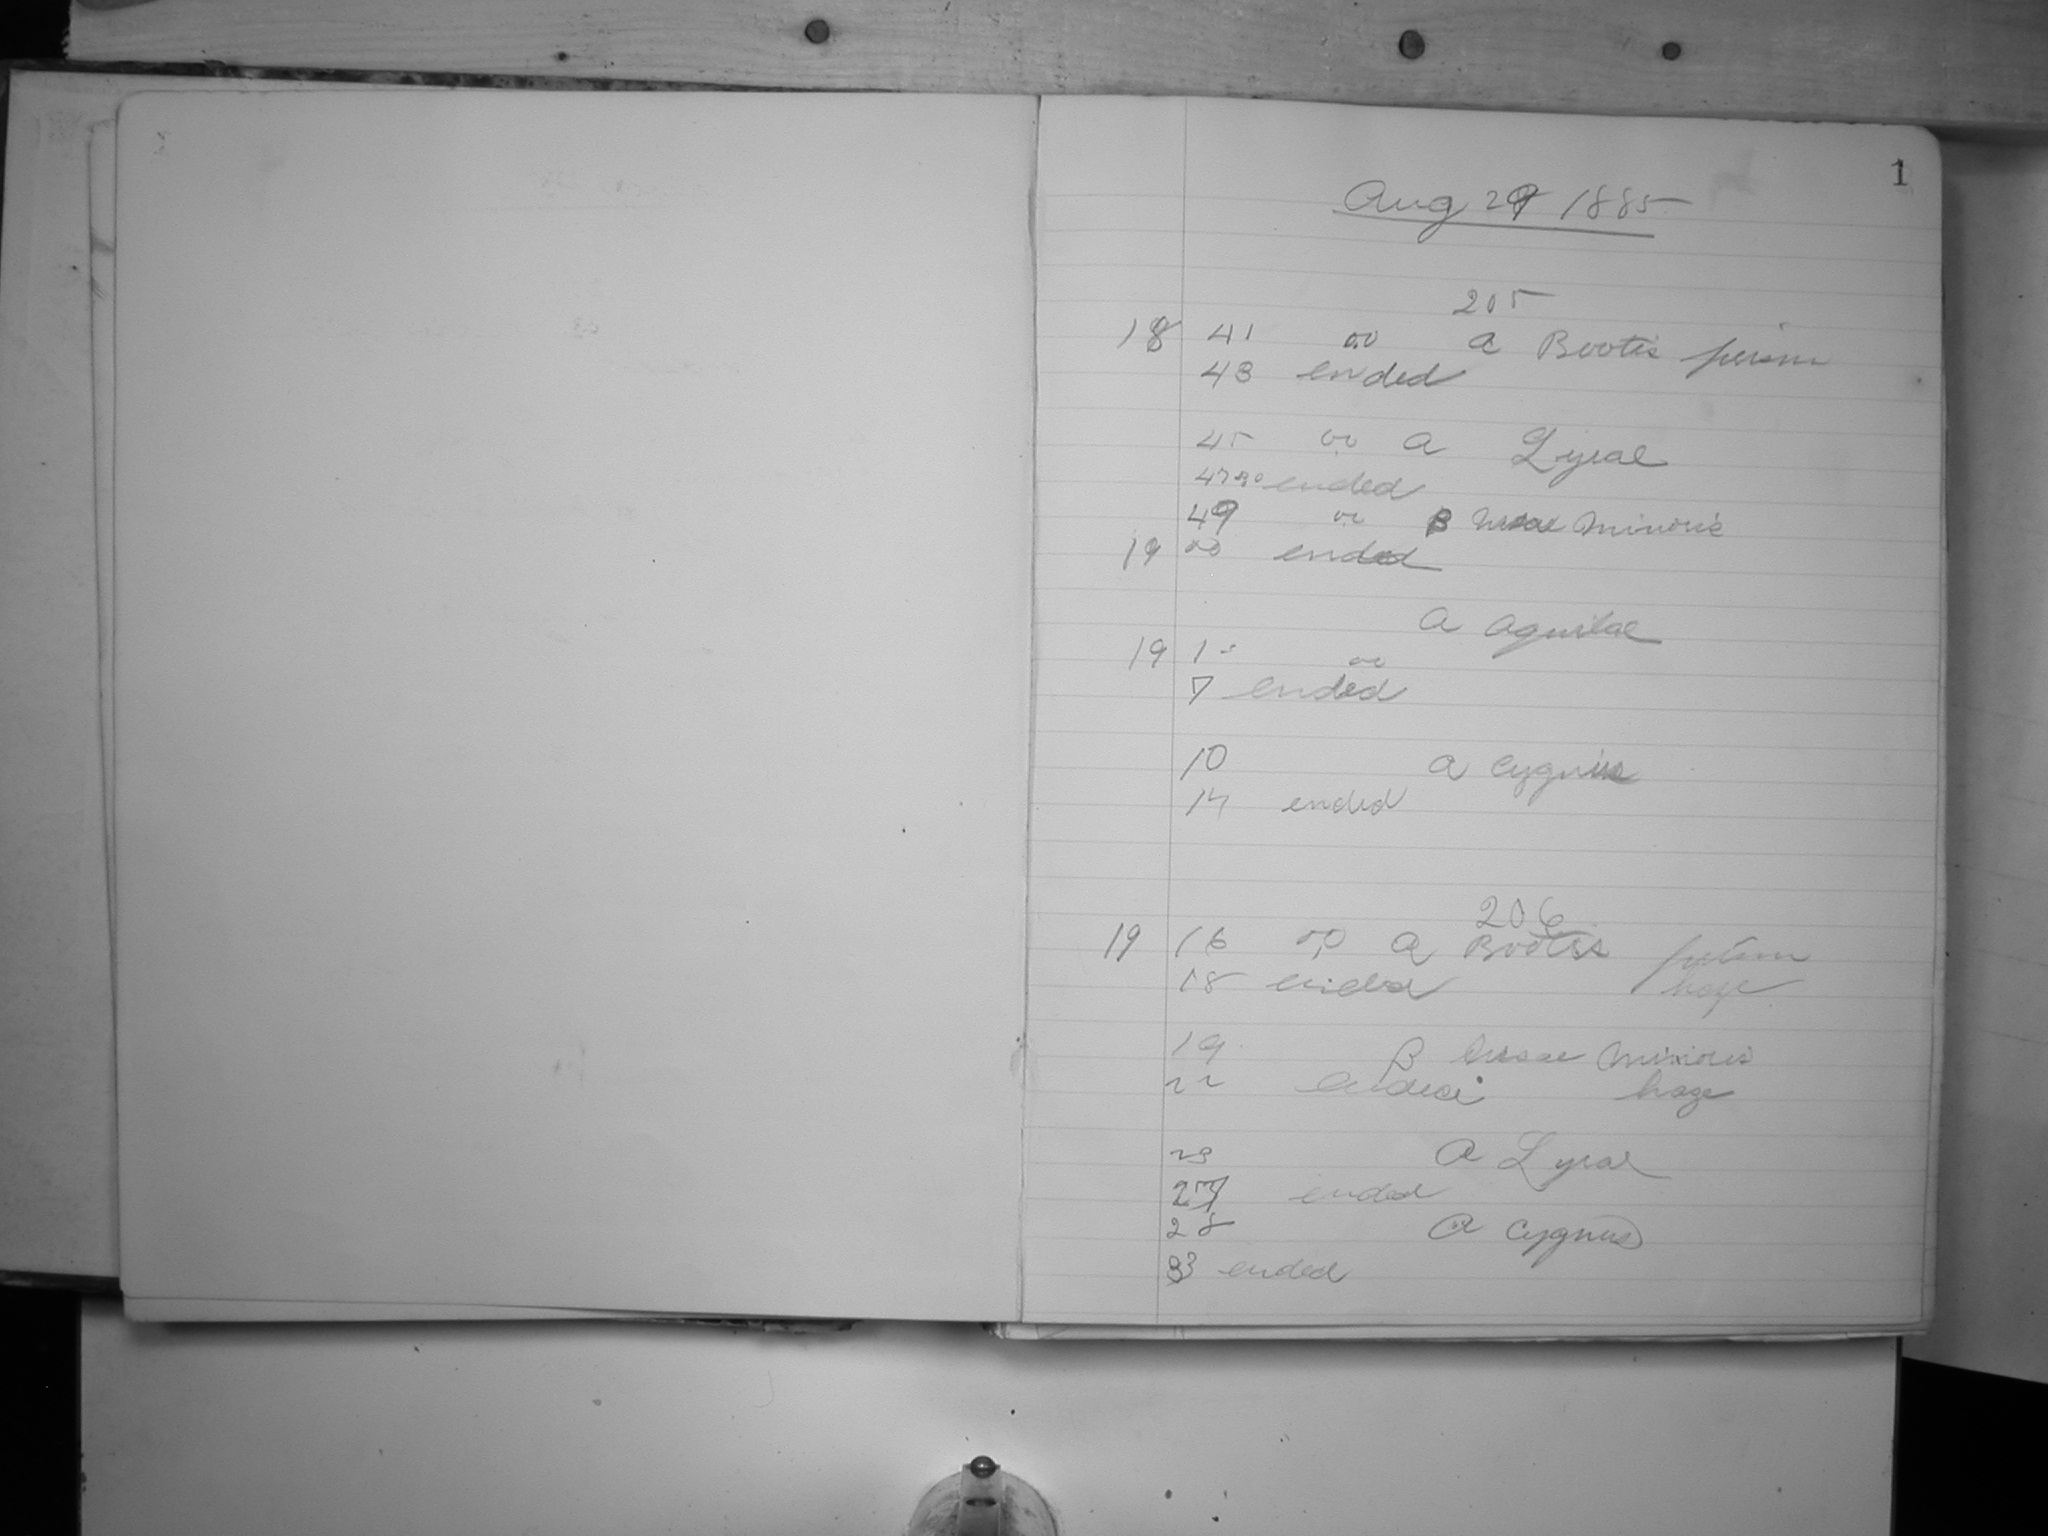 1
Aug 29 1885
205
18 41 00 a Bootis prism
43 ended
45 00 a Lyrae
47 30 ended
49 00 β Ursae Minoris
19 00 ended
a Aquilae
19 1 00
7 ended
10 a Cygnus
14 ended
206
19 16 00 a Bootis prism
18 ended haze
19 β Ursae Minoris
22 ended haze
23 a Lyrae
27 ended
28 a Cygnus
33 ended